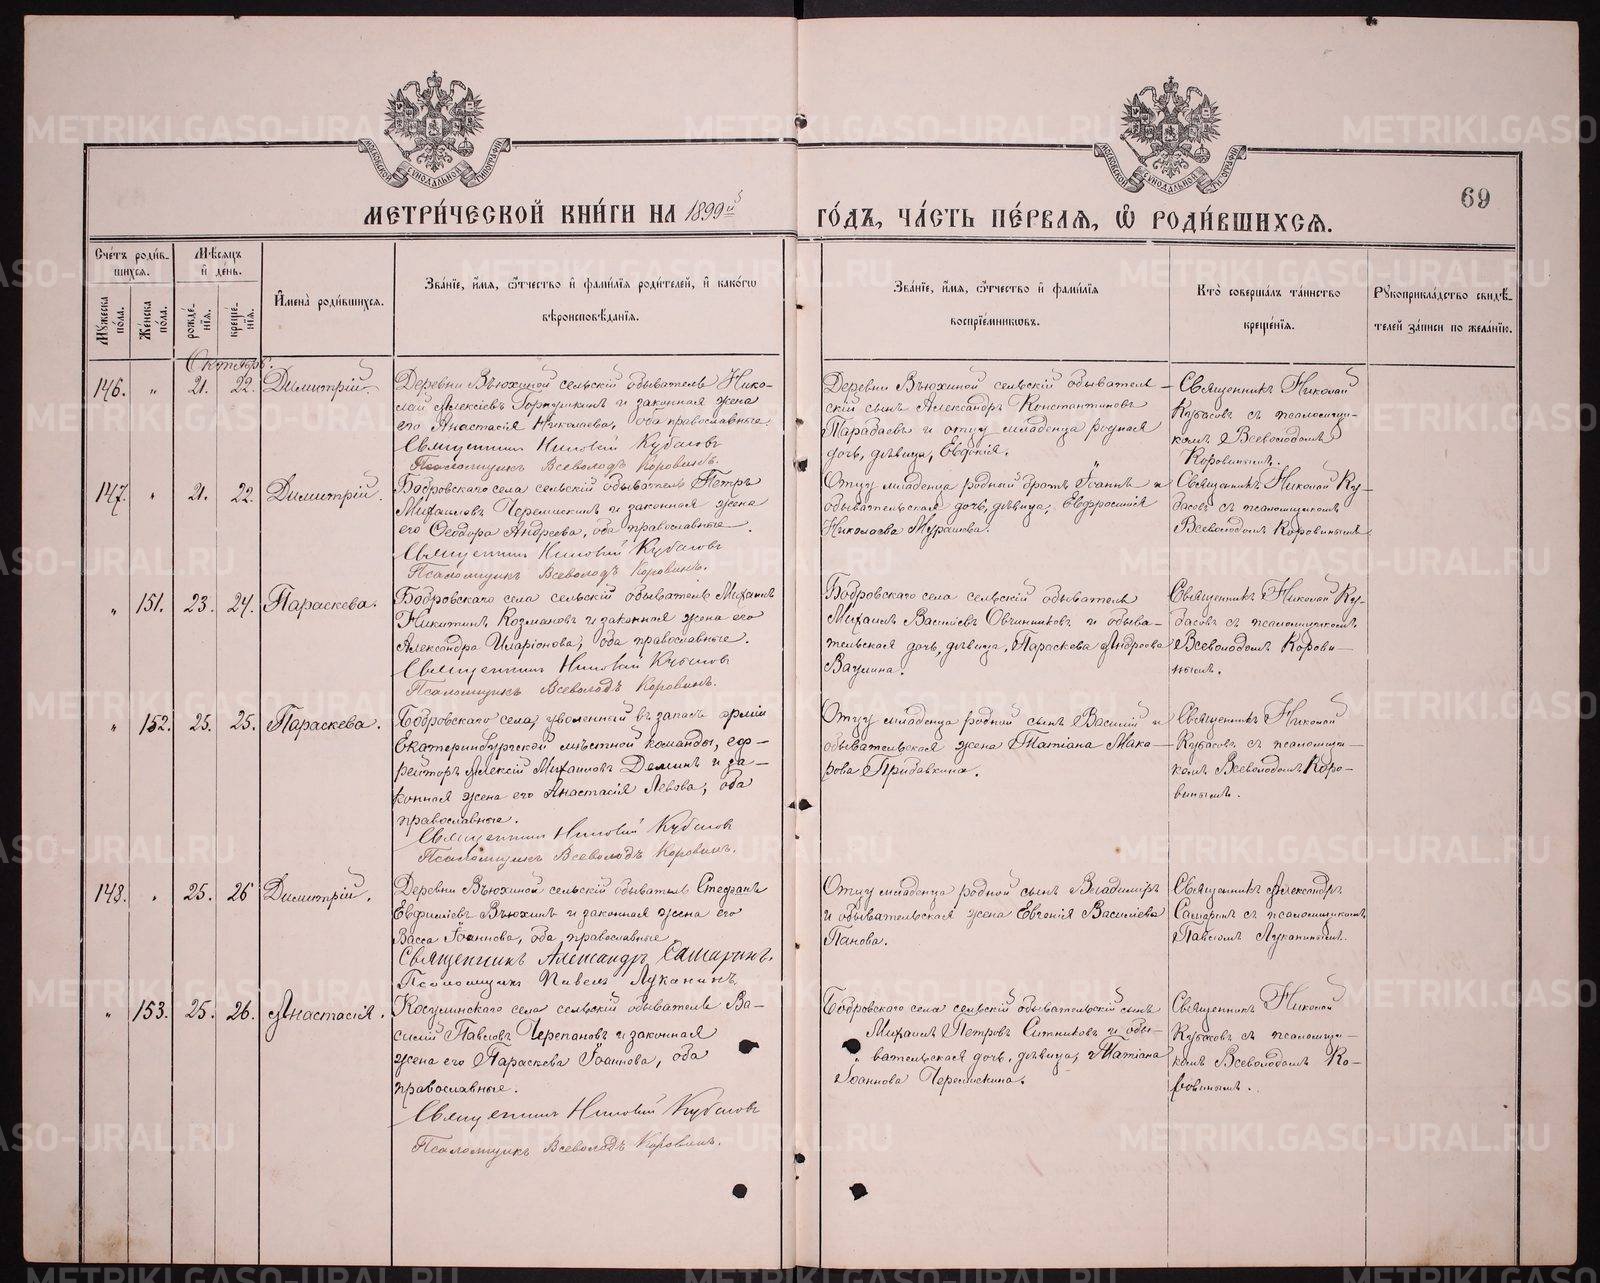 МОСКОВСКОЙ СѴНОДАЛЬНОЙ ТИПОГРАФІИ
МОСКОВСКОЙ СѴНОДАЛЬНОЙ ТИПОГРАФІИ
69
МЕТРИ́ЧЕСКОЙ КНИ́ГИ НА 1899й
ГО́ДЪ, ЧА́СТЬ ПЕ́РВАЯ, Ѡ҆ РОДИ́ВШИХСѦ.
Сче́тъ роди́в-
шихсѧ.
Мѣ́сѧцъ
и҆ де́нь.
И҆мена̀ роди́вшихсѧ.
Зва́нїе, и҆́мѧ, ѻ҆́тчество и҆ фами́лїѧ роди́телей, и҆ како́гѡ
вѣроисповѣ́данїѧ.
Зва́нїе, и҆́мѧ, ѻ҆́тчество и҆ фами́лїѧ
воспрїе́мникѡвъ.
Кто̀ соверша́лъ та́инство
креще́нїѧ.
Рꙋкоприкла́дство свидѣ́-
телей за́писи по жела́нїю.
Мꙋ́жеска по́ла.
Же́нска по́ла.
рожде́-нїѧ.
креще́-нїѧ.
Октябрь.
146. " 21. 22. Димитрій.
Деревни Вьюхиной сельскій обыватель Нико-
лай Алексіевъ Горпушкинъ и законная жена
его Анастасія Николаева, оба православные.
Священникъ Николай Кубасовъ
Псаломщикъ Всеволодъ Коровинъ.
Деревни Вьюхиной сельскій обыватель-
скій сынъ Александръ Константиновъ
Парадаевъ и отцу младенца родная
дочь, дѣвица, Евдокія.
Священникъ Николай
Кубасовъ съ псаломщи-
комъ Всеволодомъ
Коровинымъ.
147. " 21. 22. Димитрій.
Бобровскаго села сельскій обыватель Петръ
Михаиловъ Черемискинъ и законная жена
его Ѳеодора Андреева, оба православные.
Священникъ Николай Кубасовъ
Псаломщикъ Всеволодъ Коровинъ.
Отцу младенца родной братъ Іоаннъ и
обывательская дочь, дѣвица, Евфросинія
Николаева Мурашова.
Священникъ Николай Ку-
басовъ съ псаломщикомъ
Всеволодомъ Коровинымъ
" 151. 23. 24. Параскева.
Бобровскаго села сельскій обыватель Михаилъ
Никитинъ Козмановъ и законная жена его
Александра Иларіонова, оба православные.
Священникъ Николай Кубасовъ
Псаломщикъ Всеволодъ Коровинъ.
Бобровскаго села сельскій обыватель
Михаилъ Васильевъ Овчинниковъ и обыва-
тельская дочь, дѣвица, Параскева Андреева
Ваулина.
Священникъ Николай Ку-
басовъ съ псаломщикомъ
Всеволодомъ Корови-
нымъ.
" 152. 25. 25. Параскева.
Бобровскаго села, уволенный въ запасъ арміи
Екатеринбургской мѣстной команды, еф-
рейторъ Алексій Михаиловъ Деминъ и за-
конная жена его Анастасія Львова, оба
православные.
Священникъ Николай Кубасовъ
Псаломщикъ Всеволодъ Коровинъ.
Отцу младенца родной сынъ Василій и
обывательская жена Татіана Мака-
рова Придавкина.
Священникъ Николай
Кубасовъ съ псаломщи-
комъ Всеволодомъ Коро-
винымъ.
148. " 25. 26 Димитрій.
Деревни Вьюхиной сельскій обыватель Стефанъ
Евфиміевъ Вьюхинъ и законная жена его
Васса Іоаннова, оба православные
Священникъ Александръ Сашаринъ.
Псаломщикъ Павелъ Луканинъ.
Отцу младенца родной сынъ Владиміръ
и обывательская жена Евгенія Васильева
Панова.
Священникъ Александръ
Сашаринъ съ псаломщикомъ
Павломъ Луканинымъ.
" 153. 25. 26. Анастасія.
Косулинскаго села сельскій обыватель Ва-
силій Павловъ Черепановъ и законная
жена его Параскева Іоаннова, оба
православные.
Священникъ Николай Кубасовъ
Псаломщикъ Всеволодъ Коровинъ.
Бобровскаго села сельскій обывательскій сынъ
Михаилъ Петровъ Ситниковъ и обы-
вательская дочь, дѣвица, Татіана
Іоаннова Черемискина.
Священникъ Николай
Кубасовъ съ псаломщи-
комъ Всеволодомъ Ко-
ровинымъ.
METRIKI.GASO-URAL.RU